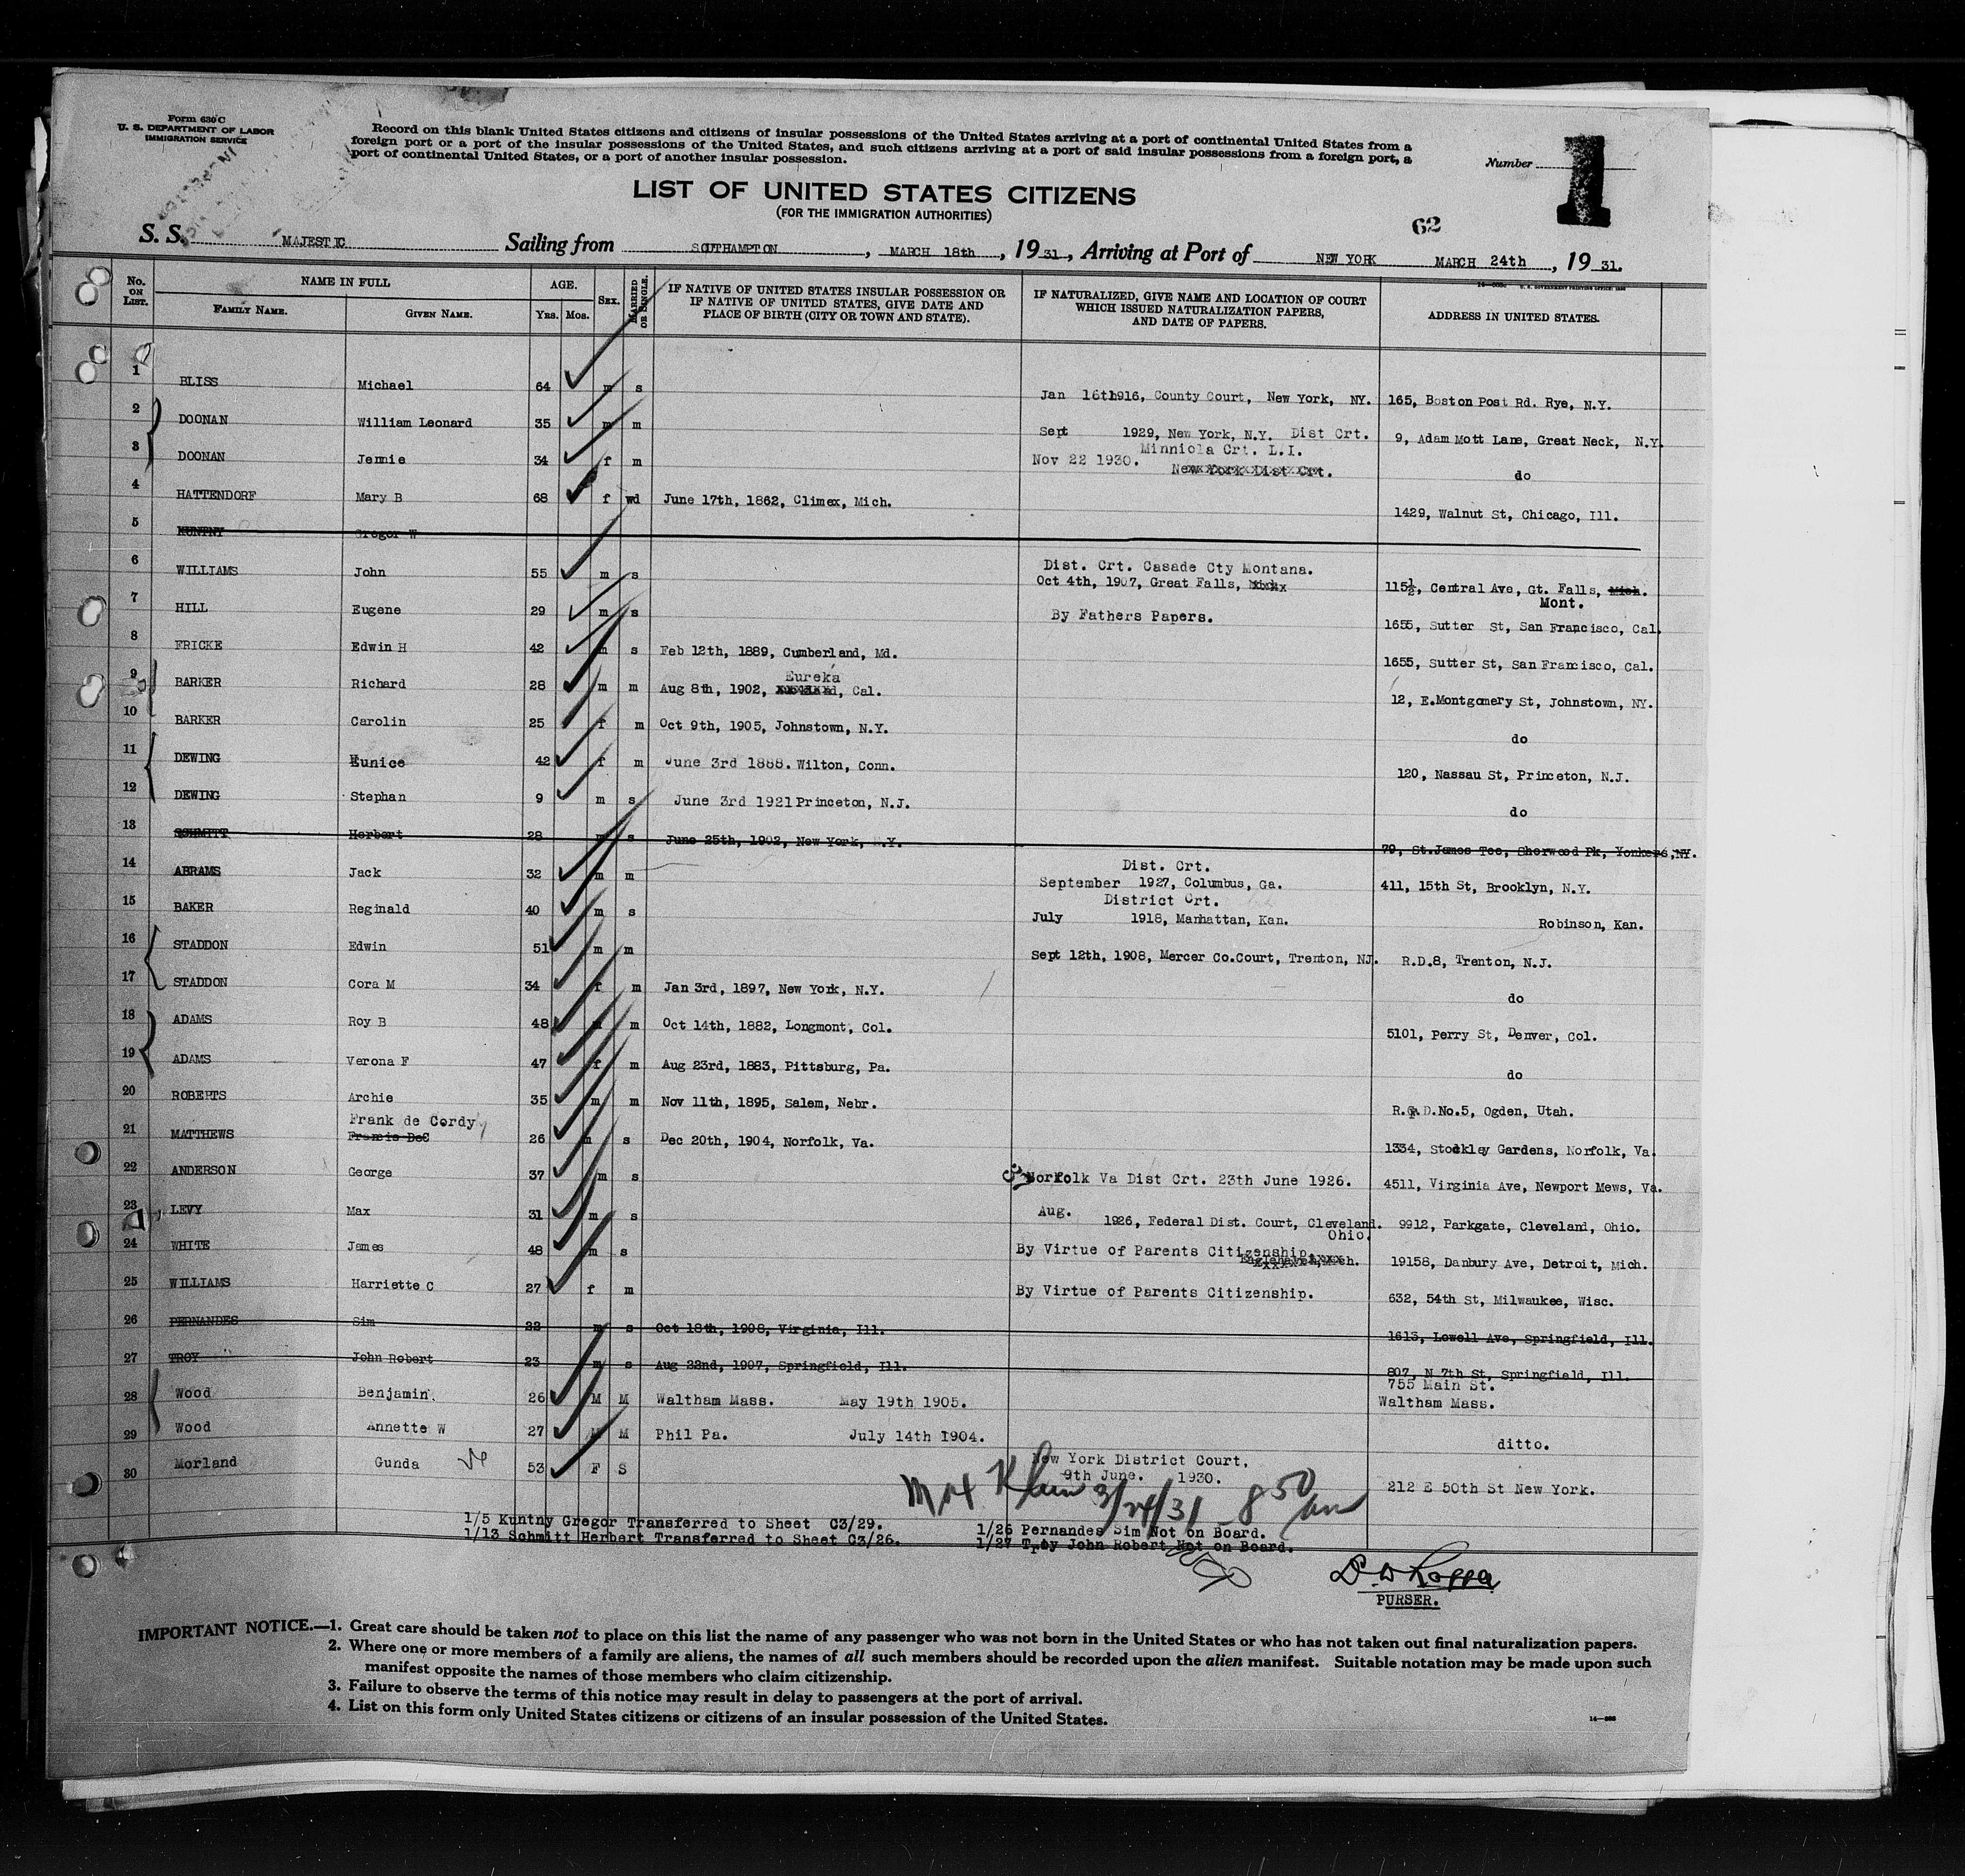 Form 630 C
U. S. DEPARTMENT OF LABOR
IMMIGRATION SERVICE
Record on this blank United States citizens and citizens of insular possessions of the United States arriving at a port of continental United States from a
foreign port or a port of the insular possessions of the United States, and such citizens arriving at a port of said insular possessions from a foreign port, a
port of continental United States, or a port of another insular possession.
Number 1
LIST OF UNITED STATES CITIZENS
(FOR THE IMMIGRATION AUTHORITIES)
62
S. S. MAJESTIC Sailing from SOUTHAMPTON, MARCH 18th, 1931, Arriving at Port of NEW YORK MARCH 24th, 1931.
No. ON LIST. NAME IN FULL AGE. SEX. MARRIED OR SINGLE. IF NATIVE OF UNITED STATES INSULAR POSSESSION OR IF NATIVE OF UNITED STATES, GIVE DATE AND PLACE OF BIRTH (CITY OR TOWN AND STATE). IF NATURALIZED, GIVE NAME AND LOCATION OF COURT WHICH ISSUED NATURALIZATION PAPERS, AND DATE OF PAPERS. ADDRESS IN UNITED STATES.
FAMILY NAME. GIVEN NAME. YRS. MOS.
1 BLISS Michael 64 m s Jan 16th1916, County Court, New York, NY. 165, Boston Post Rd. Rye, N.Y.
2 DOONAN William Leonard 35 m m Sept 1929, New York, N.Y. Dist Crt. 9, Adam Mott Lane, Great Neck, N.Y.
Minniola Crt. L.I.
3 DOONAN Jennie 34 f m Nov 22 1930. New York Dist Crt. do
4 HATTENDORF Mary B 68 f wd June 17th, 1862, Climex, Mich. 1429, Walnut St, Chicago, Ill.
5 KUNTNY Gregor W
Dist. Crt. Casade Cty Montana.
6 WILLIAMS John 55 m s Oct 4th, 1907, Great Falls, 115½, Central Ave, Gt. Falls, Mich.
Mont.
7 HILL Eugene 29 m s By Fathers Papers. 1655, Sutter St, San Francisco, Cal.
8 FRICKE Edwin H 42 m s Feb 12th, 1889, Cumberland, Md. 1655, Sutter St, San Francisco, Cal.
Eureka
9 BARKER Richard 28 m m Aug 8th, 1902, Cal. 12, E.Montgomery St, Johnstown, NY.
10 BARKER Carolin 25 f m Oct 9th, 1905, Johnstown, N.Y. do
11 DEWING Eunice 42 f m June 3rd 1888. Wilton, Conn. 120, Nassau St, Princeton, N.J.
12 DEWING Stephan 9 m s June 3rd 1921 Princeton, N.J. do
13 SCHMITT Herbert 28 m s June 25th, 1902, New York, N.Y. 79, St.James Tce, Sherwood Pk, Yonkers,NY.
Dist. Crt.
14 ABRAMS Jack 32 m m September 1927, Columbus, Ga. 411, 15th St, Brooklyn, N.Y.
District Crt.
15 BAKER Reginald 40 m s July 1918, Manhattan, Kan. Robinson, Kan.
16 STADDON Edwin 51 m m Sept 12th, 1908, Mercer Co.Court, Trenton, NJ. R.D.8, Trenton, N.J.
17 STADDON Cora M 34 f m Jan 3rd, 1897, New York, N.Y. do
18 ADAMS Roy B 48 m m Oct 14th, 1882, Longmont, Col. 5101, Perry St, Denver, Col.
19 ADAMS Verona F 47 f m Aug 23rd, 1883, Pittsburg, Pa. do
20 ROBERTS Archie 35 m m Nov 11th, 1895, Salem, Nebr. R. D.No.5, Ogden, Utah.
Frank de Cordy
21 MATTHEWS Francis DeC 26 m s Dec 20th, 1904, Norfolk, Va. 1334, Stockley Gardens, Norfolk, Va.
22 ANDERSON George 37 m s Norfolk Va Dist Crt. 23th June 1926. 4511, Virginia Ave, Newport Mews, Va.
23 LEVY Max 31 m s Aug. 1926, Federal Dist. Court, Cleveland. 9912, Parkgate, Cleveland, Ohio.
Ohio.
24 WHITE James 48 m s By Virtue of Parents Citizenship. 19158, Danbury Ave, Detroit, Mich.
25 WILLIAMS Harriette C 27 f m By Virtue of Parents Citizenship. 632, 54th St, Milwaukee, Wisc.
26 PERNANDES Sim 22 m s Oct 18th, 1908, Virginia, Ill. 1613, Lowell Ave, Springfield, Ill.
27 TROY John Robert 23 m s Aug 22nd, 1907, Springfield, Ill. 807, N 7th St, Springfield, Ill.
755 Main St.
28 Wood Benjamin. 26 M M Waltham Mass. May 19th 1905. Waltham Mass.
29 Wood Annette W 27 M Phil Pa. July 14th 1904. ditto.
New York District Court.
30 Morland Gunda 53 F S 9th June. 1930. 212 E 50th St New York.
Max Klein 3/24/31 - 8 50 am
1/5 Kuntny Gregor Transferred to Sheet C3/29. 1/26 Pernandes Sim Not on Board.
1/13 Schmitt Herbert Transferred to Sheet C3/26. 1/27 Troy John Robert Not on Board.
PURSER.
IMPORTANT NOTICE.—1. Great care should be taken not to place on this list the name of any passenger who was not born in the United States or who has not taken out final naturalization papers.
2. Where one or more members of a family are aliens, the names of all such members should be recorded upon the alien manifest. Suitable notation may be made upon such
manifest opposite the names of those members who claim citizenship.
3. Failure to observe the terms of this notice may result in delay to passengers at the port of arrival.
4. List on this form only United States citizens or citizens of an insular possession of the United States.